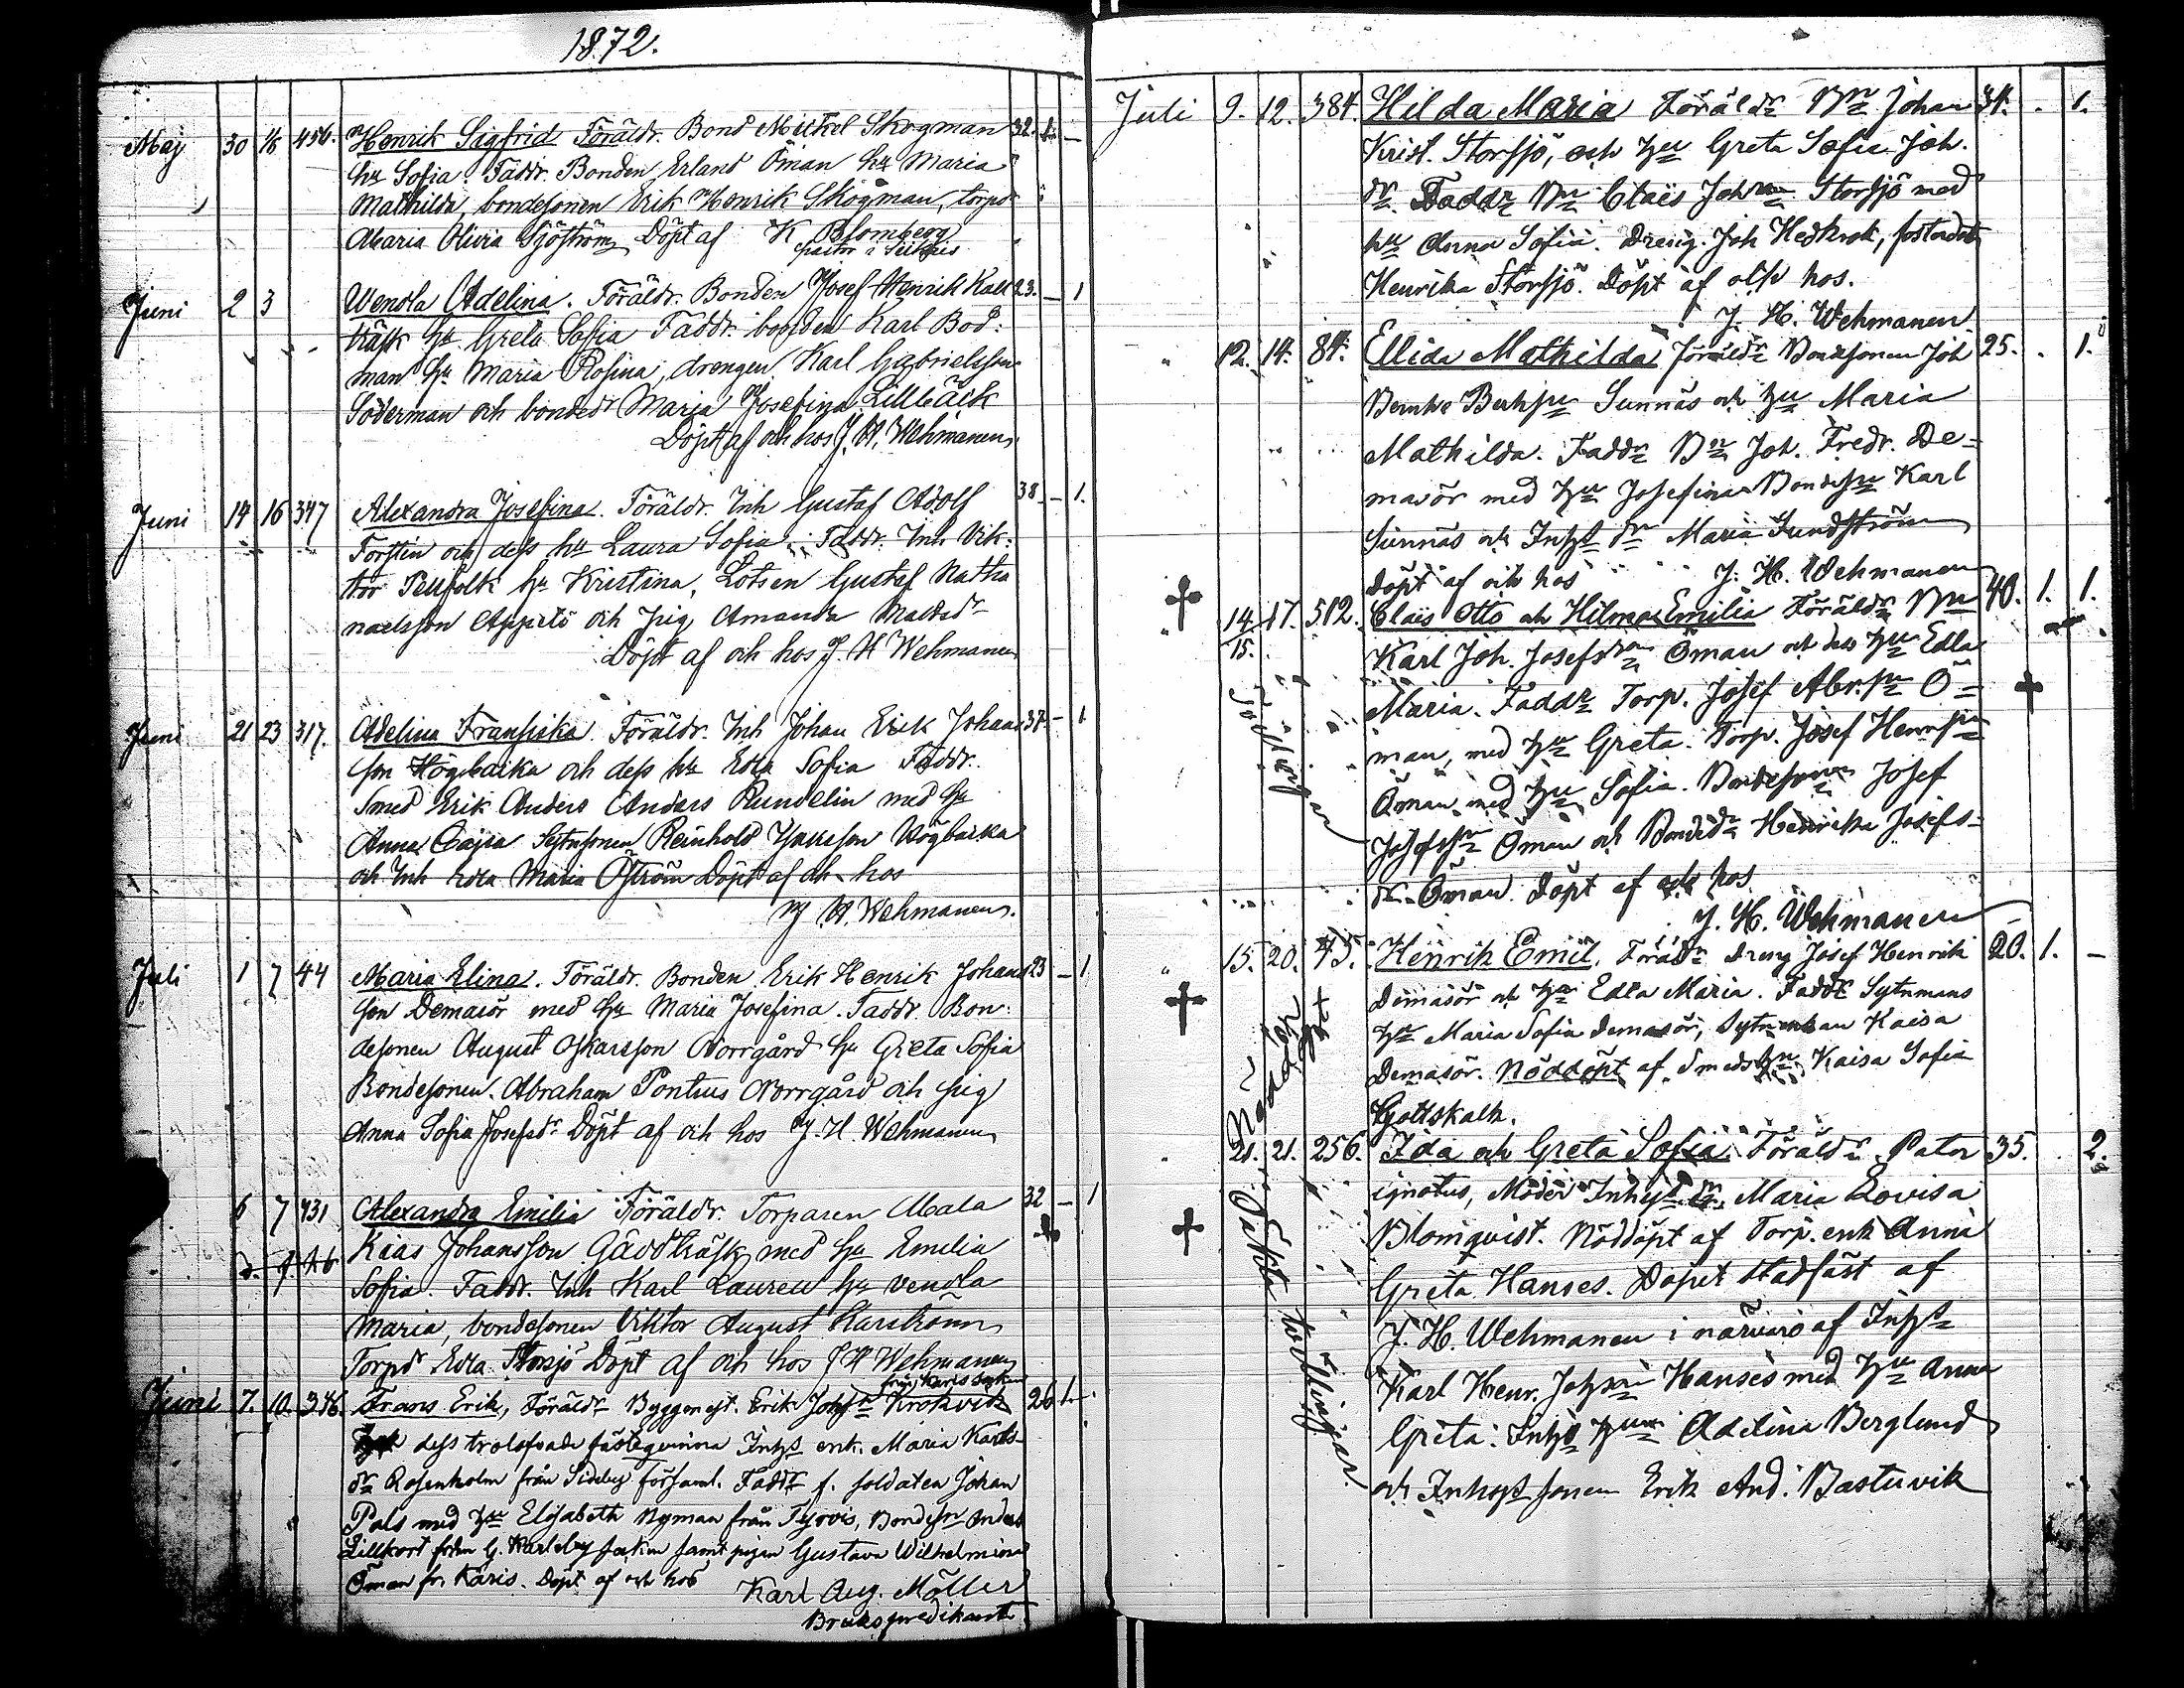 1872.
Maj 30 1/6 456. Henrik Sigfrid Föräldr. Bond Mickel Skogman 32. 1. —
hu Sofia. Faddr. Bonden Erland Öman hu Maria
Mathilda, bondesonen Erik Henrik Skogman, torpdr
Maria Olivia Sjöström Döpt af K Blomberg
pastor i
Juni 2 3 Wendla Adelina. Föräldr. Bonden Josef Henrik Kall 23. — 1
träsk hu Greta Sofia Faddr. bonden Karl Bod:
man hu Maria Rosina, drengen Karl Gabrielsson
Söderman och bondedr Maria Josefina Lillbäck
Döpt af och hos J. H. Wehmanen.
Juni 14 16 347 Alexandra Josefina. Föräldr. Inh Gustaf Adolf 38 — 1.
Forstin och dess hu Laura Sofia. Faddr. Inh Vik:
tor hu Kristina, Lotsen Gustaf Natha
naelsson och pig Amanda
Döpt af och hos J. H Wehmanen
Juni 21 23 317. Adelina Fransiska. Föräldr. Inh Johan Erik Johans 37 — 1
son Högbacka och dess hu Edla Sofia Faddr.
Smed Erik Anders Anders Rundelin med hu
Anna Cajsa Sytnsonen Reinhold Högbacka
och Inh Edla Maria Öström Döpt af och hos
J H. Wehmanen.
Juli 1 7 44 Maria Elina. Föräldr. Bonden Erik Henrik Johans 23 — 1
son Demasör med hu Maria Josefina. Faddr. Bon:
desonen August Oskarsson Norrgård hu Greta Sofia
Bondesonen Abraham Pontus Norrgård och pig
Anna Sofia Josefsdr Döpt af och hos J. H. Wehmanen
6 7 431 Alexandra Emilia Föräldr. Torparen Mala 32 — 1
kias Johansson Gäddträsk med hu Emelia
Sofia. Faddr. Inh Karl Lauren hu Vendla
Maria, bondesonen Viktor August Karström
Torpdr Edla Storsjö Döpt af och hos J H Wehmanen
från Karis socken
Juni 7. 10. 346. Frans Erik, Föräldr Byggmest. Erik Johsn Krokvik 26 1. —
dess trolofvade fästeqvinna Inhs enk. Maria Karls-
dr Rosenholm från Sideby församl. Faddr f. soldaten Johan
Pals med hu Elisabeth Nyman från Tjovis, Bondesn Anders
Lillkort från G. Karleby socken samt pigan Gustava Wilhelmina
Öman fr. Karis. Döpt af och hos Karl Aug. Möller
Brukspredikant
Juli 9. 12. 384. Hilda Maria Föräldr Bn Johan 34. . 1.
Krist. Storsjö, och hu Greta Sofia Joh.
dr. Faddr Bn Claës Johsn Storsjö med
hu Anna Sofia. Dreng. Joh Hedkrok, fosterdotr
Henrika Storsjö. Döpt af och hos.
J. H. Wehmanen
" 12. 14. 84. Ellida Mathilda Föräldr Bondsonen Joh 25. . 1.
Sunnäs och hu Maria
Mathilda. Faddr Bn Joh. Fredr. De=
masör med hu Josefina Bondesn Karl
Sunnäs och Inhs dr Maria Sundström
Döpt af och hos J. H. Wehmanen
" 14/15. 17. 512. Claës Otto och Hilma Emilia Föräldr Bn 40. 1. 1.
Karl Joh. Josefsson Öman och des hu Edla
Maria. Faddr Torp. Josef Abr.sn Ö=
man, med hu Greta. Torp. Josef Henrsn
Öman med hu Sofia. Bondesonen Josef
Josefssn Öman och Bondedr Henrika Josefs-
dr Öman. Döpt af och hos
J. H. Wehmanen
Tvillingar
" 15. 20. 45. Henrik Emil. Föräldr Dreng Josef Henrik 20. 1. —
Demasör och hu Edla Maria. Faddr Sytnmans
hu Maria Sofia Demasör, Sytnenkan Kaisa
Demasör. Nöddöpt af Smedshu Kaisa Sofia
Gottskalk.
Nöddöpt
" 21. 21. 256. Ida och Greta Sofia Föräldr Pater 35. . 2.
ignotus, Moder Inhys dr. Maria Lovisa
Blomqvist. Nöddöpt af Torp. enk Anna
Greta Hanses. Dopet stadfäst af
J. H. Wehmanen i närvaro af Inhs
Karl Henr. Johsn Hanses med hu Anna
Greta. Inhs hun Adelina Berglund
och Inhys sonen Erik And. Bastuvik
oäkta tvillingar